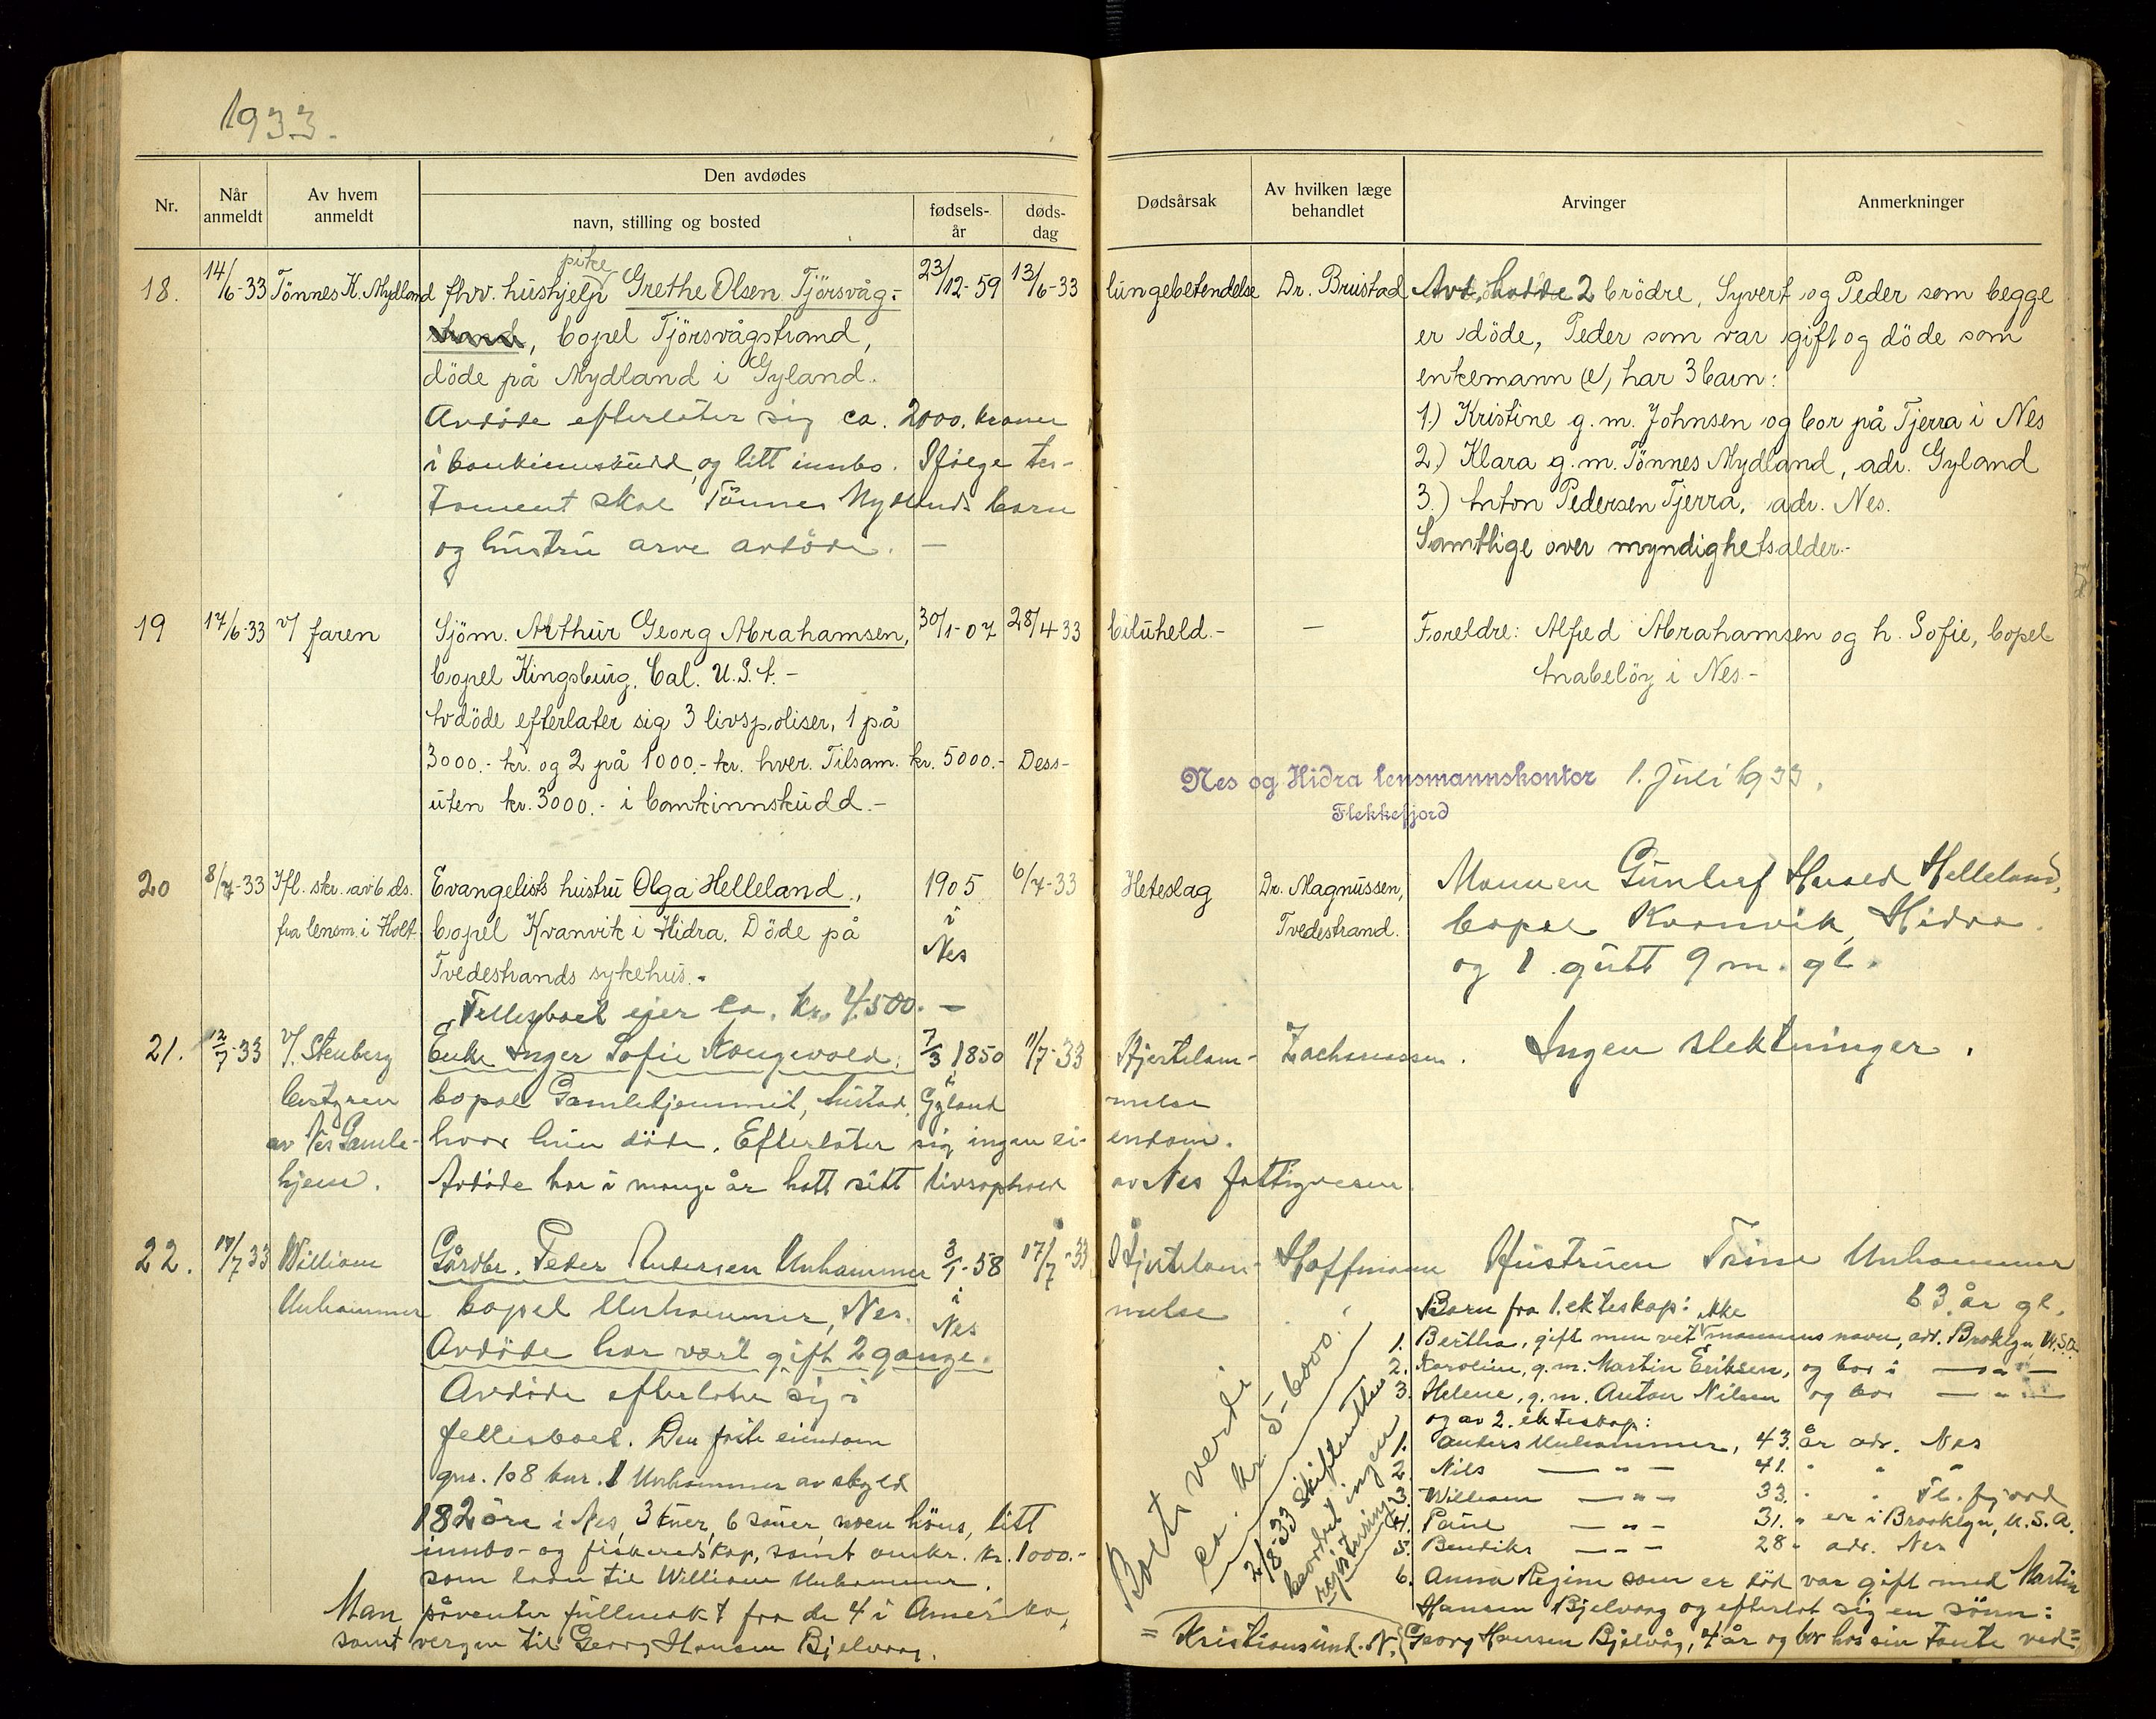 1933.
Nr.
Når anmeldt
Av hvem anmeldt
Den avdødes
navn, stilling og bosted
fødsels-år
døds-dag
Dødsårsak
Av hvilken læge behandlet
Arvinger
Anmerkninger
18.
14/6-33
Tönnes K. Mydland
pike
fhv. hushjelp Grethe Olsen Tjörsvåg-
strand, bopel Tjörsvågstrand,
döde på Mydland i Gyland.
Avdöde efterlater sig ca. 2000. kroner
i bankinnskudd, og litt innbo. Ifölge tes-
tament skal Tönnes Mydlands barn
og hustru arve avdöde. —
23/12-59
13/6-33
lungebetendelse
Dr. Brustad
Avd. hadde 2 brödre, Syvert og Peder som begge
er döde, Peder som var gift og döde som
enkemann (e), har 3 barn:
1.) Kristine g. m. Johnsen og bor på Tjerra i Nes
2.) Klara g. m. Tönnes Mydland, adr. Gyland
3.) Anton Pedersen Tjerra, adr. Nes.
Samtlige over myndighetsalder.-
19
17/6-33
v/ faren
Sjöm. Arthur Georg Abrahamsen,
bopel Kingsburg, Cal. U.S.A. -
Avdöde efterlater sig 3 livspoliser, 1 på
3000.- kr. og 2 på 1000.- kr. hver. Tilsam. kr. 5000.- Dess-
uten kr. 3000.- i bankinnskudd.-
30/1-07
28/4-33
biluheld.-
—
Foreldre: Alfred Abrahamsen og h. Sofie, bopel
Anabelöy i Nes.-
Nes og Hidra lensmannskontor 1. Juli 1933.
Flekkefjord
20
8/7-33
Ifl. skr. av 6 ds.
fra lensm. i Holt
Evangelists hustru Olga Helleland.,
bopel Kvanvik i Hidra. Döde på
Tvedestrands sykehus.-
Fellesboet eier ca. kr. 4500.—
1905
i
Nes
6/7-33
Heteslag
Dr. Magnussen,
Tvedestrand.
Mannen Gunleif Harald Helleland,
bopel Kvanvik, Hidra.
og 1 gutt 9 m. gl.
21.
12/7-33
v/. Stenberg
bestyrer
av Nes Gamle-
hjem.
Enke Inger Sofie Haugevold,
bopel Gamlehjemmet, Austad,
hvor hun döde. Efterlater sig ingen ei-
Avdöde har i mange år hatt sitt livsophold
7/3 1850
i
Gyland
11/7-33
Hjertelam-
melse
endom.
av Nes fattigvesen.
Zachariassen.
Ingen slektninger.
22.
19/7 33
William
Unhammer
Gårdbr. Peder Andersen Unhammer
bopel Unhammer, Nes.
Avdöde har vært gift 2 gange.
Avdöde efterlater sig i
fellesboet. Den faste eiendom
gnr. 108 bnr. 1 Unhammer av skyld
182 öre i Nes, 3 kuer, 6 sauer, noen höns, litt
innbo- og fiskeredskap, samt omkr. kr. 1000.-
som laan til William Unhammer.
Man påventer fullmakt fra de 4 i Amerika,
samt vergen til Georg Hansen Bjelvaag.
3/1-58
i
Nes
17/7-33
Hjertelam-
melse
Hoffmann
Hustruen Trine Unhammer
63 år gl.
Barn fra 1. ekteskap:
ikke
1. Bertha, gift men vet mannens navn, adr. Brooklyn, U.S.A.
2. Karoline, g. m. Martin Eriksen, og bor i — " —
3. Helene, g. m. Anton Nilsen og bor — " —
og av 2. ekteskap:
1. Anders Unhammer, 43. år adr. Nes
2. Nils — " — 41. " " "
3. William — " — 33. " " Fl.fjord
4. Paul — " — 31. " er i Brooklyn, U.S.A.
5. Bendiks — " — 28 " adr. Nes
6. Anna Regine som er död var gift med Martin
Hansen Bjelvaag og efterlot sig en sönn:
Georg Hansen Bjelvåg, 4 år og bor hos sin tante ved =
= Kristiansund. N.
Boets verdi
ca. kr. 5-6000.
2/8-33 skifteretten
beordret ingen
registrering